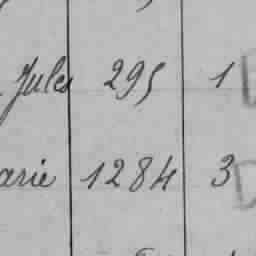 Jules 295 1
arie 1284 3